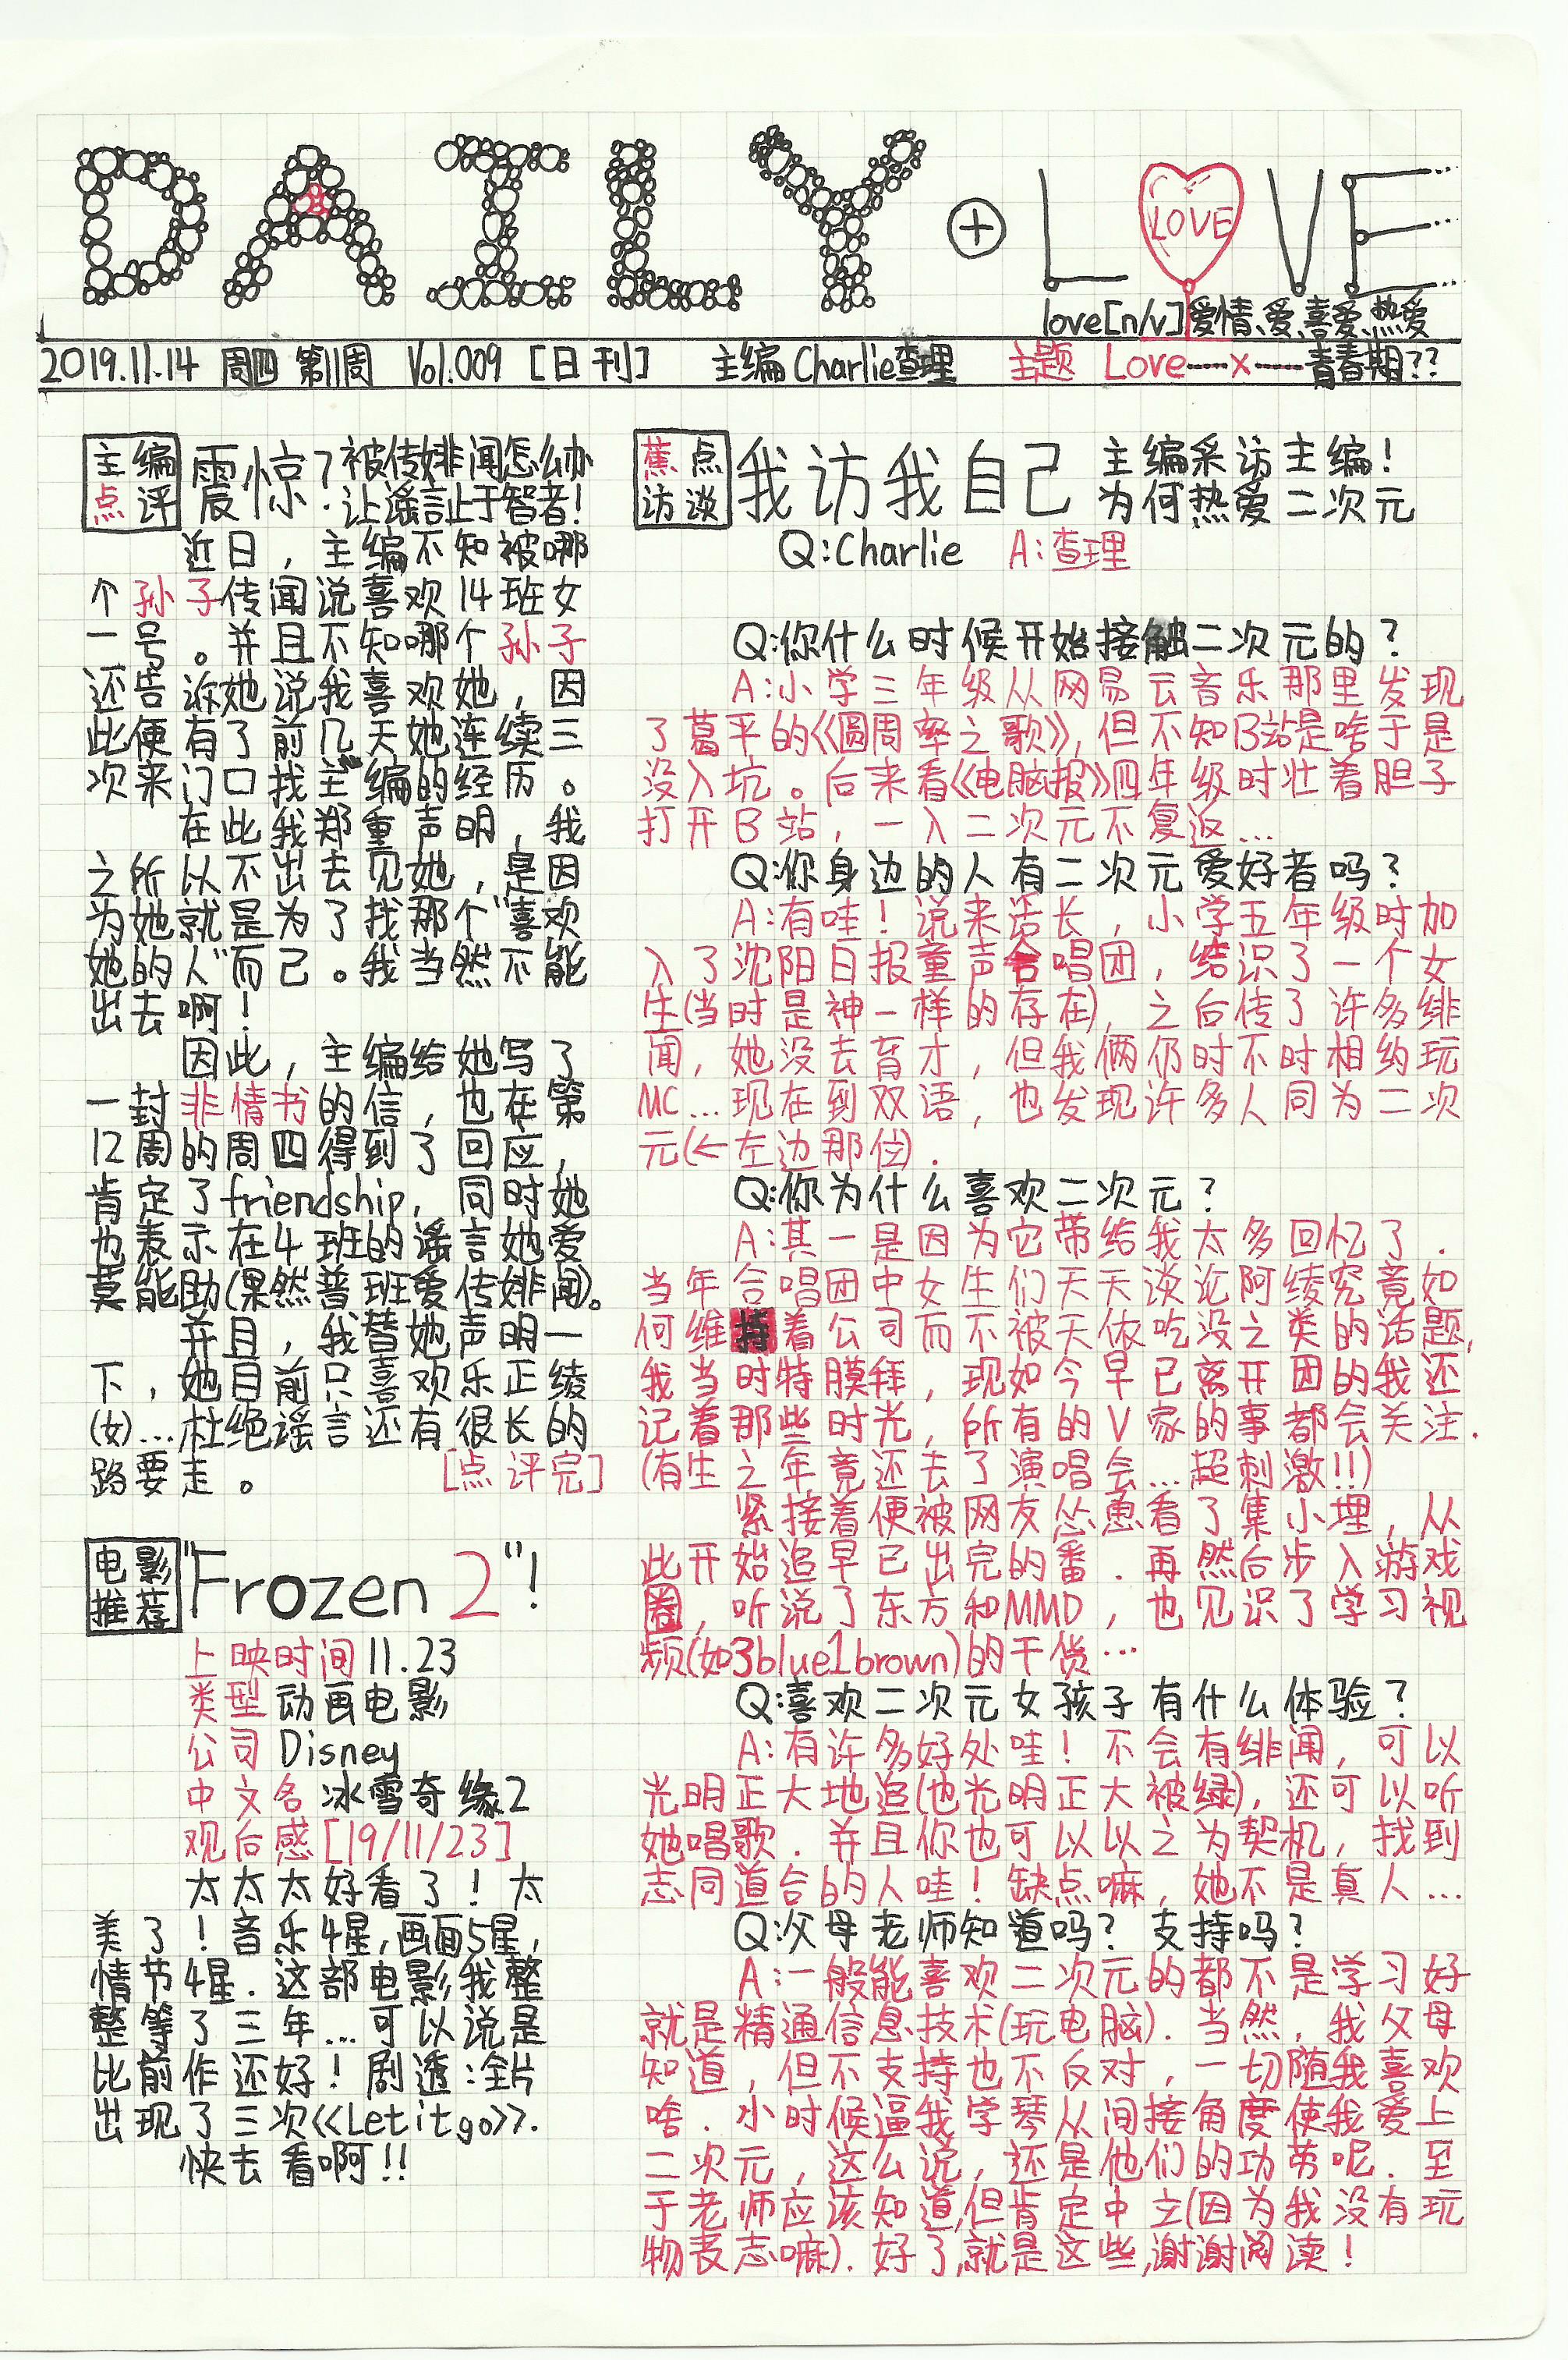 DAILY + LOVE
LOVE
love[n/v]爱情、爱、喜爱、热爱
2019.11.14 周四 第11周 Vol.009 [日刊] 主编Charlie查理 主题 Love----x----青春期??
主编
点评
震惊?被传绯闻怎么办
让谣言止于智者!
近日,主编不知被哪
个孙子传闻说喜欢14班女
一号。并且不知哪个孙子
还告诉她说我喜欢她,因
此便有了前几天她连续三
次来门口找主编的经历。
在此我郑重声明,我
之所以不出去见她,是因
为她就是为了找那个"喜欢
她的人"而已。我当然不能
出去啊!
因此,主编给她写了
一封非情书的信,也在第
12周的周四得到了回应,
肯定了friendship,同时她
也表示在4班的谣言她爱
莫能助(果然普班爱传绯闻)。
并且,我替她声明一
下,她目前只喜欢乐正绫
(女)...杜绝谣言还有很长的
路要走。 [点评完]
电影
推荐
"Frozen 2"!
上映时间 11.23
类型 动画电影
公司 Disney
中文名 冰雪奇缘2
观后感[19/11/23]
太太太好看了!太
美了!音乐4星,画面5星,
情节4星.这部电影我整
整等了三年...可以说是
比前作还好!剧透:全片
出现了三次<<Let it go>>.
快去看啊!!
蕉点
访谈
我访我自己
主编采访主编!
为何热爱二次元
Q:Charlie A:查理
Q:你什么时候开始接触二次元的?
A:小学三年级从网易云音乐那里发现
了葛平的《圆周率之歌》,但不知B站是啥于是
没入坑。后来看《电脑报》四年级时壮着胆子
打开B站,一入二次元不复返...
Q:你身边的人有二次元爱好者吗?
A:有哇!说来话长,小学五年级时加
入了沈阳日报童声合唱团,结识了一个女
生(当时是神一样的存在),之后传了许多绯
闻,她没去育才,但我俩仍时不时相约玩
MC...现在到双语,也发现许多人同为二次
元(←左边那位).
Q:你为什么喜欢二次元?
A:其一是因为它带给我太多回忆了.
当年合唱团中女生们天天谈论阿绫究竟如
何维持着公司而不被天依吃没之类的话题,
我当时特膜拜,现如今早已离开团的我还
记着那些时光,所有的V家的事都会关注.
(有生之年竟还去了演唱会...超刺激!!)
紧接着便被网友怂恿看了集小埋,从
此开始追早已出完的番.再然后步入游戏
圈,听说了东方和MMD,也见识了学习视
频(如3blue1brown)的干货...
Q:喜欢二次元女孩子有什么体验?
A:有许多好处哇!不会有绯闻,可以
光明正大地追(也光明正大被绿),还可以听
她唱歌.并且你也可以以之为契机,找到
志同道合的人哇!缺点嘛,她不是真人...
Q:父母老师知道吗?支持吗?
A:一般能喜欢二次元的都不是学习好
就是精通信息技术(玩电脑).当然,我父母
知道,但不支持也不反对,一切随我喜欢
啥.小时候逼我学琴从间接角度使我爱上
二次元,这么说,还是他们的功劳呢.至
于老师应该知道,但肯定中立(因为我没有玩
物丧志嘛).好了,就是这些,谢谢阅读!